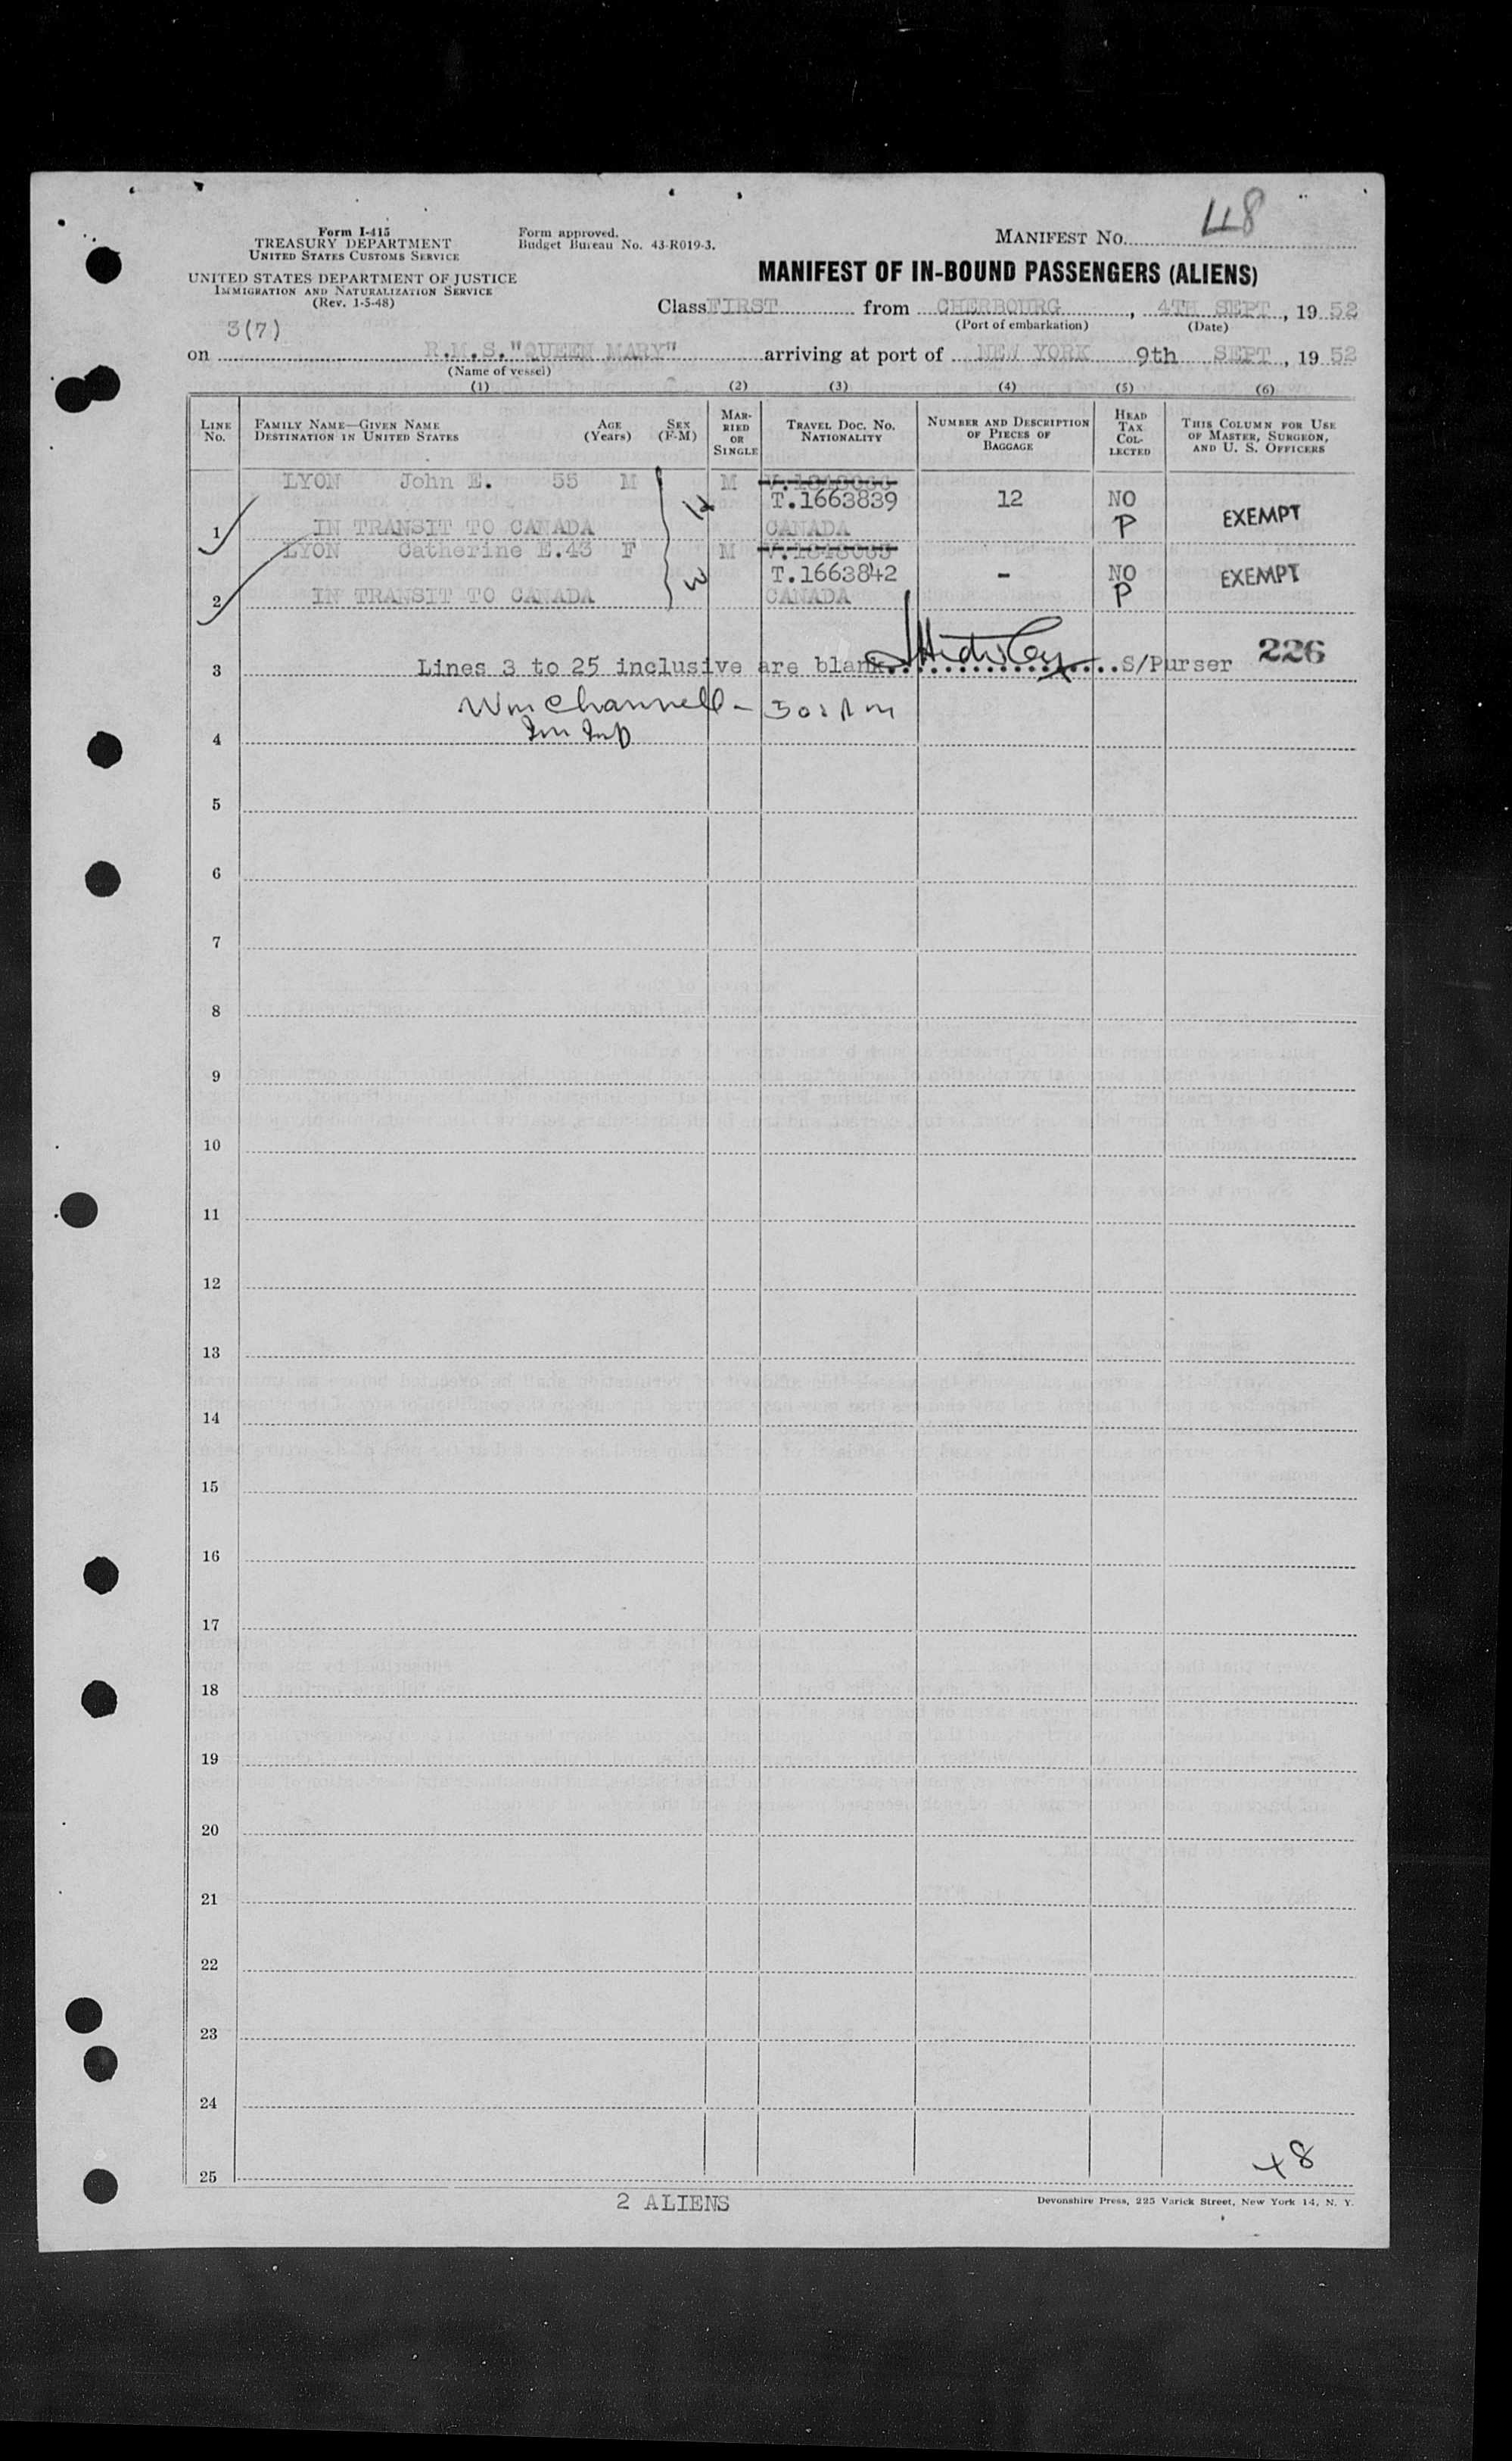 48
Form I-415
TREASURY DEPARTMENT
UNITED STATES CUSTOMS SERVICE
Form approved.
Budget Bureau No. 43-R019-3.
MANIFEST NO.
UNITED STATES DEPARTMENT OF JUSTICE
IMMIGRATION AND NATURALIZATION SERVICE
(Rev. 1-5-48)
MANIFEST OF IN-BOUND PASSENGERS (ALIENS)
Class FIRST from CHERBOURG, 4TH SEPT, 19 52
(Port of embarkation) (Date)
3(7)
on R.M.S."QUEEN MARY" arriving at port of NEW YORK 9th SEPT, 19 52
(Name of vessel)
(1) (2) (3) (4) (5) (6)
LINE No. FAMILY NAME—GIVEN NAME DESTINATION IN UNITED STATES AGE (Years) SEX (F-M) MARRIED OR SINGLE TRAVEL DOC. NO. NATIONALITY NUMBER AND DESCRIPTION OF PIECES OF BAGGAGE HEAD TAX COLLECTED THIS COLUMN FOR USE OF MASTER, SURGEON, AND U. S. OFFICERS
LYON John E. 55 M M
T.1663839 12 NO
1 IN TRANSIT TO CANADA CANADA P EXEMPT
LYON Catherine E. 43 F M
T.1663842 - NO EXEMPT
2 IN TRANSIT TO CANADA CANADA P
3 Lines 3 to 25 inclusive are blank S/Purser 226
Wm Channell -
4
5
6
7
8
9
10
11
12
13
14
15
16
17
18
19
20
21
22
23
24
48
25
2 ALIENS
Devonshire Press, 225 Varick Street, New York 14, N. Y.